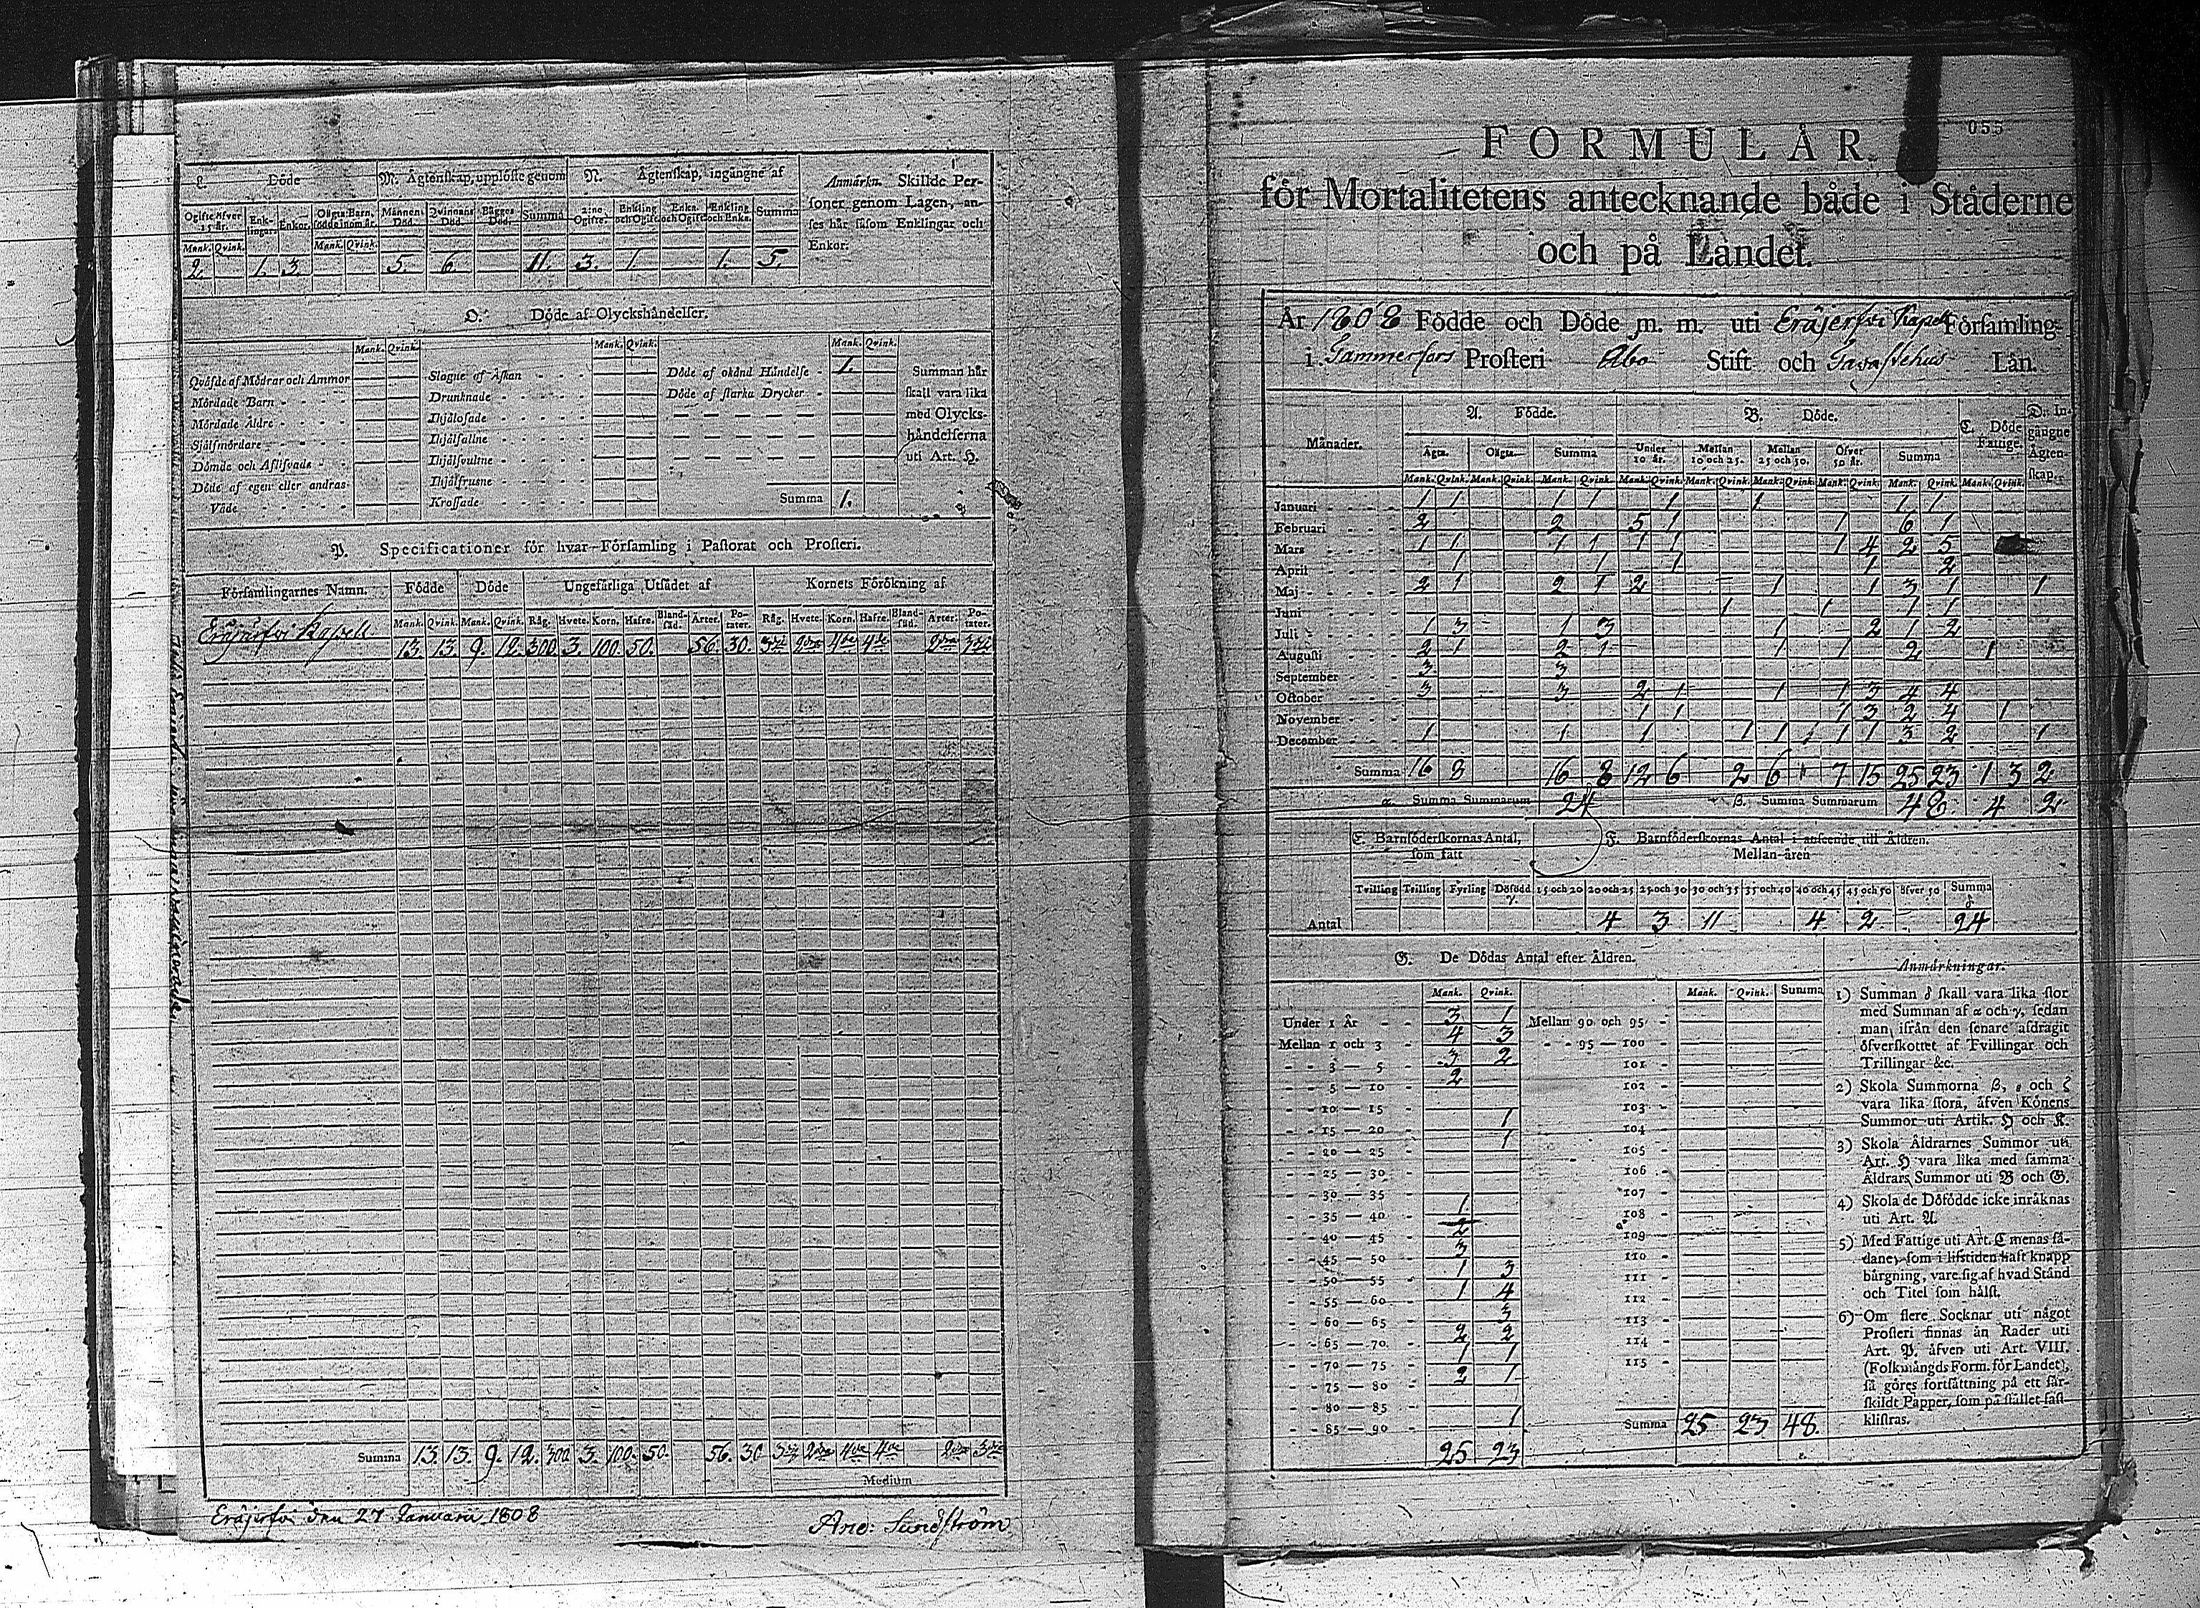 L. Döde
M. Ägtenskap, upplöste genom
N. Ägtenskap, ingångne af
Anmärkn. Skillde Per-
soner genom Lagen, an-
ses här såsom Enklingar och
Enkor.
Ogifte öfver 15 år.
Enk-lingar.
Enkor.
Oägta Barn, födde inom år.
Männens Död.
Qvinnans Död.
Bägges Död.
Summa
2:ne Ogifte.
Enkling och Ogift
Enka och Ogift
Enkling och Enka.
Summa
Mank. Qvink. Mank. Qvink.
2. 1. 3. 5. 6 11. 3. 1. 1. 5.
O. Döde af Olyckshändelser.
Mank. Qvink. Mank. Qvink. Mank. Qvink.
Qväfde af Mödrar och Ammor
Mördade Barn
Mördade Äldre
Själfmördare
Dömde och Aflifvade
Döde af egen eller andras
Våde
Slagne af Åskan
Drunknade
Ihjälosade
Ihjälfallne
Ihjälsvultne
Ihjälfrusne
Krossade
Döde af okänd Händelse 1.
Döde af starka Drycker
Summa 1.
Summan här
skall vara lika
med Olycks-
händelserna
uti Art. H.
P. Specificationer för hvar Församling i Pastorat och Prosteri.
Församlingarnes Namn. Födde Döde Ungefärliga Utsädet af Kornets Förökning af
Mank. Qvink. Mank. Qvink. Råg. Hvete. Korn. Hafre. Bland-säd. Ärter. Po-tater. Råg. Hvete. Korn. Hafre. Bland-säd. Ärter. Po-tater.
Eräjerfvi Kapell 13. 13. 9. 12. 300. 3. 100. 50. 56. 30.
Summa 13. 13. 9. 12. 300. 3. 100. 50. 56. 30
Medium
Eräjerfvi den 27 Januarii 1808
And: Sundström
055
FORMULÄR
för Mortalitetens antecknande både i Städerne
och på Landet.
År 1808 Födde och Döde m. m. uti Eräjerfvi Kapell Församling
i Tammerfors Prosteri Åbo Stift och Tavastehus Län.
Månader.
A. Födde.
B. Döde.
C. Döde Fattige.
D. In-gångne Ägten-skap.
Ägta. Oägta. Summa Under 10 år. Mellan 10 och 25. Mellan 25 och 50. Öfver 50 år. Summa
Mank. Qvink. Mank. Qvink. Mank. Qvink. Mank. Qvink. Mank. Qvink. Mank. Qvink. Mank. Qvink. Mank. Qvink. Mank. Qvink.
Januari 1 1 1 1 1 1 1 1
Februari 2 2 5 1 1 6 1
Mars 1 1 1 1 1 1 1 4 2 5
April 1 1 1 1 2
Maj 2 1 2 1 2 1 1 3 1 1
Juni 1 1 1 1
Juli 1 3 1 3 1 2 1 2
Augusti 2 1 2 1 1 1 2 1
September 3 3
October 3 3 2 1 1 1 3 4 4
November 1 1 1 3 2 4 1
December 1 1 1 1 1 1 1 3 2 1
Summa 16 8 16 8 12 6 2 6 7 15 25 23 1 3 2
α. Summa Summarum 24 β. Summa Summarum 48 4 2
E. Barnföderskornas Antal, som fått
F. Barnföderskornas Antal i anseende till Åldren.
Mellan åren
Tvilling Trilling Fyrling Dödfödd γ. 15 och 20 20 och 25 25 och 30 30 och 35 35 och 40 40 och 45 45 och 50 öfver 50 Summa δ
Antal 4 3 11 4 2 24
G. De Dödas Antal efter Åldren.
Mank. Qvink. Mank. Qvink. Summa
Under 1 År 3 1
Mellan 1 och 3 4 3
3 — 5 3 2
5 — 10 2
10 — 15
15 — 20 1
20 — 25 1
25 — 30
30 — 35
35 — 40 1
40 — 45 2
45 — 50 3
50 — 55 1 3
55 — 60 1 4
60 — 65 3
65 — 70 2 2
70 — 75 1 1
75 — 80 2 1
80 — 85
85 — 90 1
25 23
Mellan 90 och 95
95 — 100
101
102
103
104
105
106
107
108
109
110
111
112
113
114
115
Summa 25 23 48.
Anmärkningar.
1) Summan δ skall vara lika stor
med Summan af α och γ, sedan
man ifrån den senare afdragit
öfverskottet af Tvillingar och
Trillingar &c.
2) Skola Summorna β, ε och ζ
vara lika stora, äfven Könens
Summor uti Artik. H och K.
3) Skola Åldrarnes Summor uti
Art. H vara lika med samma
Åldrars Summor uti B och G.
4) Skola de Döfödde icke inräknas
uti Art. A.
5) Med Fattige uti Art. C menas så-
dane, som i lifstiden haft knapp
bärgning, vare sig af hvad Stånd
och Titel som hälst.
6) Om flere Socknar uti något
Prosteri finnas än Rader uti
Art. P. äfven uti Art. VIII.
(Folkmängds Form. för Landet),
så göres fortsättning på ett sär-
skildt Papper, som på stället fast
klistras.